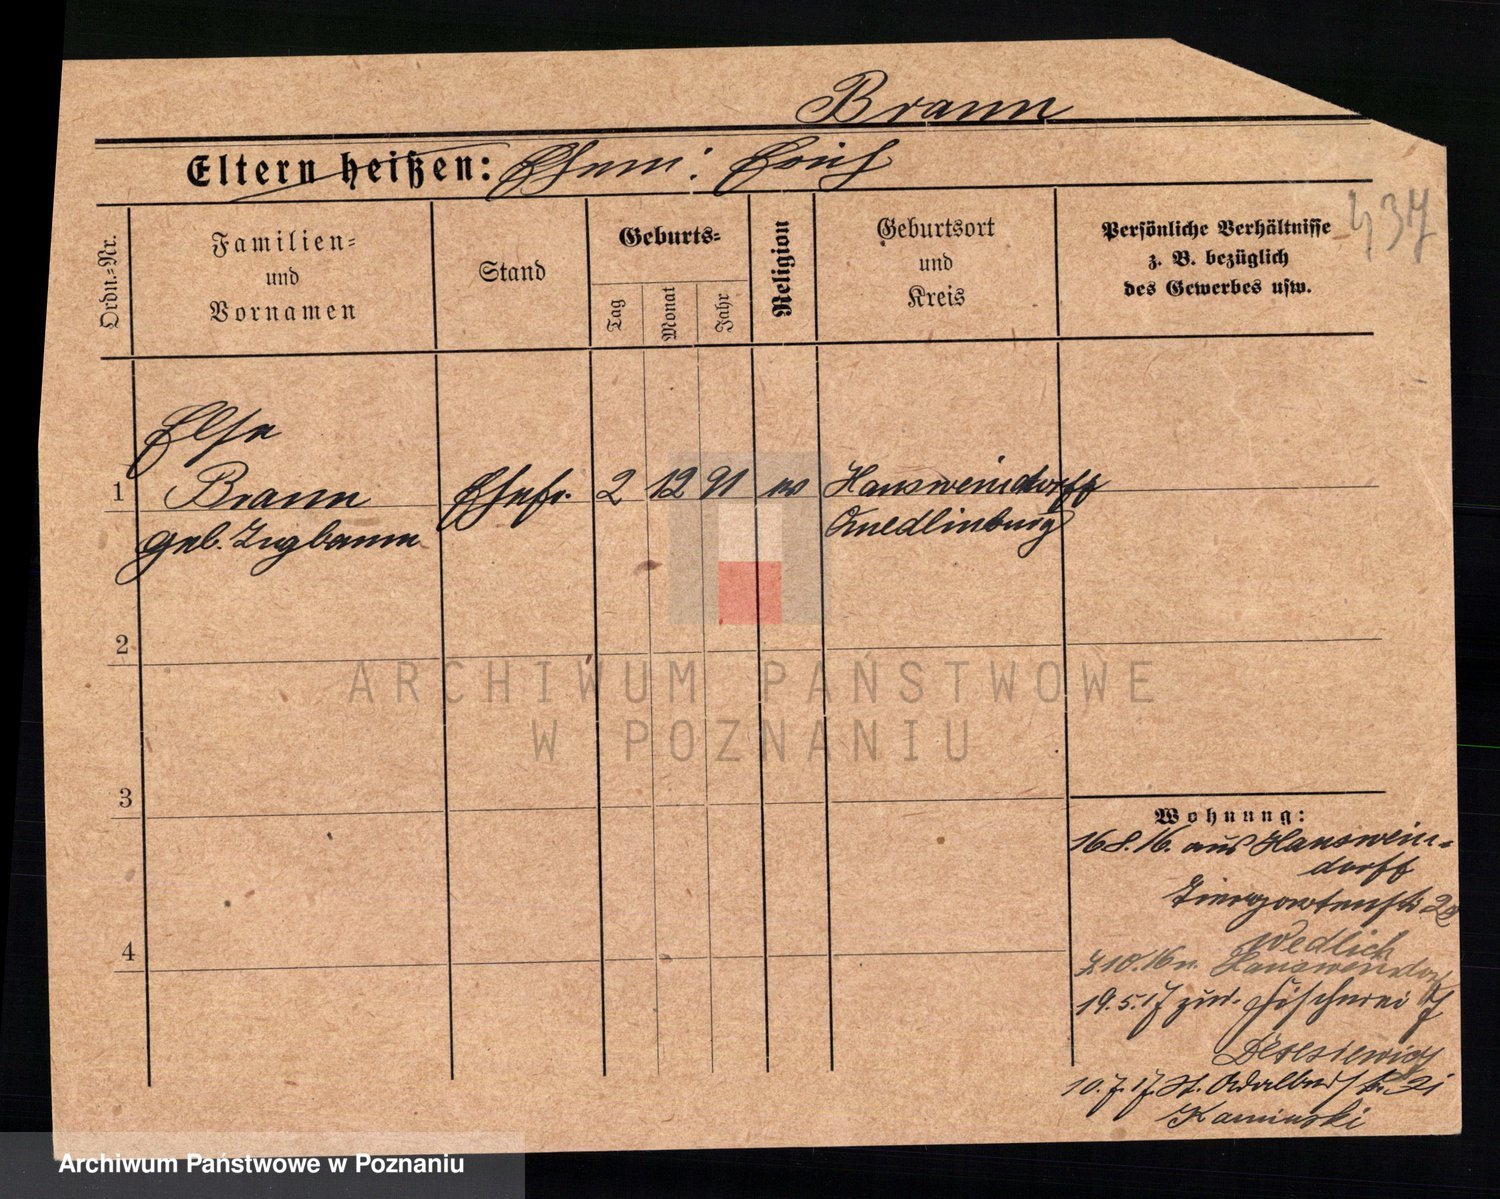 Braun
Eltern heißen: Ehem: Erich
437
Ordn.-Nr.
Familien-
und
Vornamen
Stand
Geburts-
Tag
Monat
Jahr
Religion
Geburtsort
und
Kreis
Persönliche Verhältnisse
z. B. bezüglich
des Gewerbes usw.
Else
1 Braun Ehefr. 2 12 91 ev Hausweindorff
geb. Zugbaum Quedlinburg
2
3
4
Wohnung:
16.8.16. aus Hauswein-
dorff
Tiergartenstr
Wedlich
10.16 n. Hausweindorf
19.5.17 zur. Fischerei 7
10.7.17. St. Adalbertstr. 21
Kaminski
ARCHIWUM PAŃSTWOWE
W POZNANIU
Archiwum Państwowe w Poznaniu